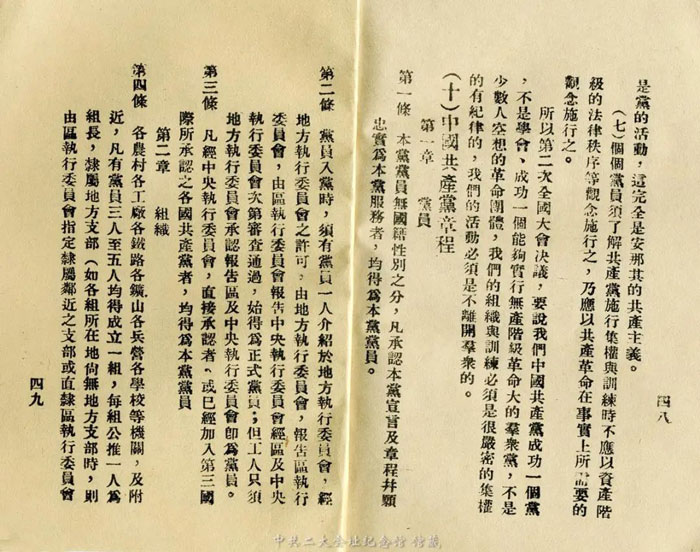 是黨的活動，這完全是安那其的共產主義。
（七）個個黨員須了解共產黨施行集權與訓練時不應以資產階
級的法律秩序等觀念施行之，乃應以共產革命在事實上所需要的
觀念施行之。
所以第二次全國大會決議，要說我們中國共產黨成功一個黨
，不是學會、成功一個能夠實行無產階級革命大的羣衆黨，不是
少數人空想的革命團體，我們的組織與訓練必須是很嚴密的集權
的有紀律的，我們的活動必須是不離開羣衆的。
（十）中國共產黨章程
第一章 黨員
第一條 本黨黨員無國籍性別之分，凡承認本黨宣言及章程幷願
忠實爲本黨服務者，均得爲本黨黨員。
四八
第二條 黨員入黨時，須有黨員一人介紹於地方執行委員會，經
地方執行委員會之許可，由地方執行委員會，報告區執行
委員會，由區執行委員會報告中央執行委員會經區及中央
執行委員會次第審查通過，始得爲正式黨員；但工人只須
地方執行委員會承認報告區及中央執行委員會卽爲黨員。
第三條 凡經中央執行委員會，直接承認者，或已經加入第三國
際所承認之各國共產黨者，均得爲本黨黨員
第二章 組織
第四條 各農村各工廠各鐵路各鑛山各兵營各學校等機關，及附
近，凡有黨員三人至五人均得成立一組，每組公推一人爲
組長，隸屬地方支部（如各組所在地尙無地方支部時，則
由區執行委員會指定隸屬鄰近之支部或直隸區執行委員會
四九
中共二大会址纪念馆 馆藏